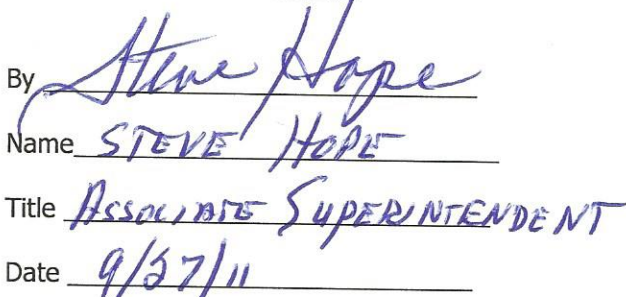 By Steve Hope
Name STEVE HOPE
Title ASSOCIATE SUPERINTENDENT
Date 9/27/11